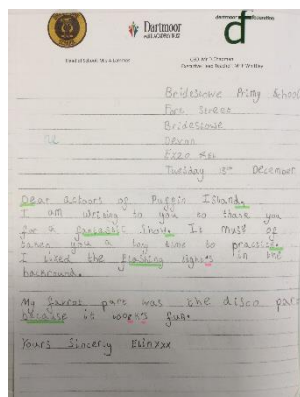 Dartmoor
Bridestowe Primy School
Fore Street
Bridestowe
Devon
Tuesday 18th December
Dear actoors of Puggin Island.
I am writing to you to thank you
for a fantastic show. It must of
taken you a long time to practice.
I liked the flashing light's in the
backround.
My favrot part was the disco part
because it work's fun.
Yours Sincerly